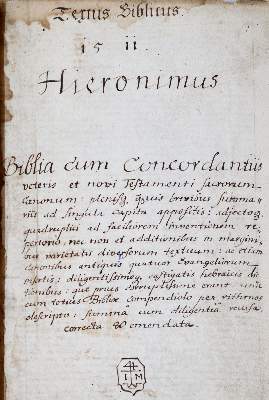 Textus Biblicus.
15 11.
Hieronimus
Biblia cum Concordantiis
veteris et novi Testamenti sacrorum
canonum: plenisq; quius brevibus summa
riis ad singula capita appositis: adjectoq;
quadruplici ad faciliorem inventionem re
pertorio, nec non et additionibus in margini
bus varietatis diversorum textuum: ac etiam
canonibus antiquis quatuor Evangeliorum
insertis: diligentissimeq; castigatis hebraicis di
ctionibus: que prius corruptissime erant una
cum totius Biblie compendiolo per rithmos
descripto: summa cum diligentia revisa
correcta & emendata.
I M